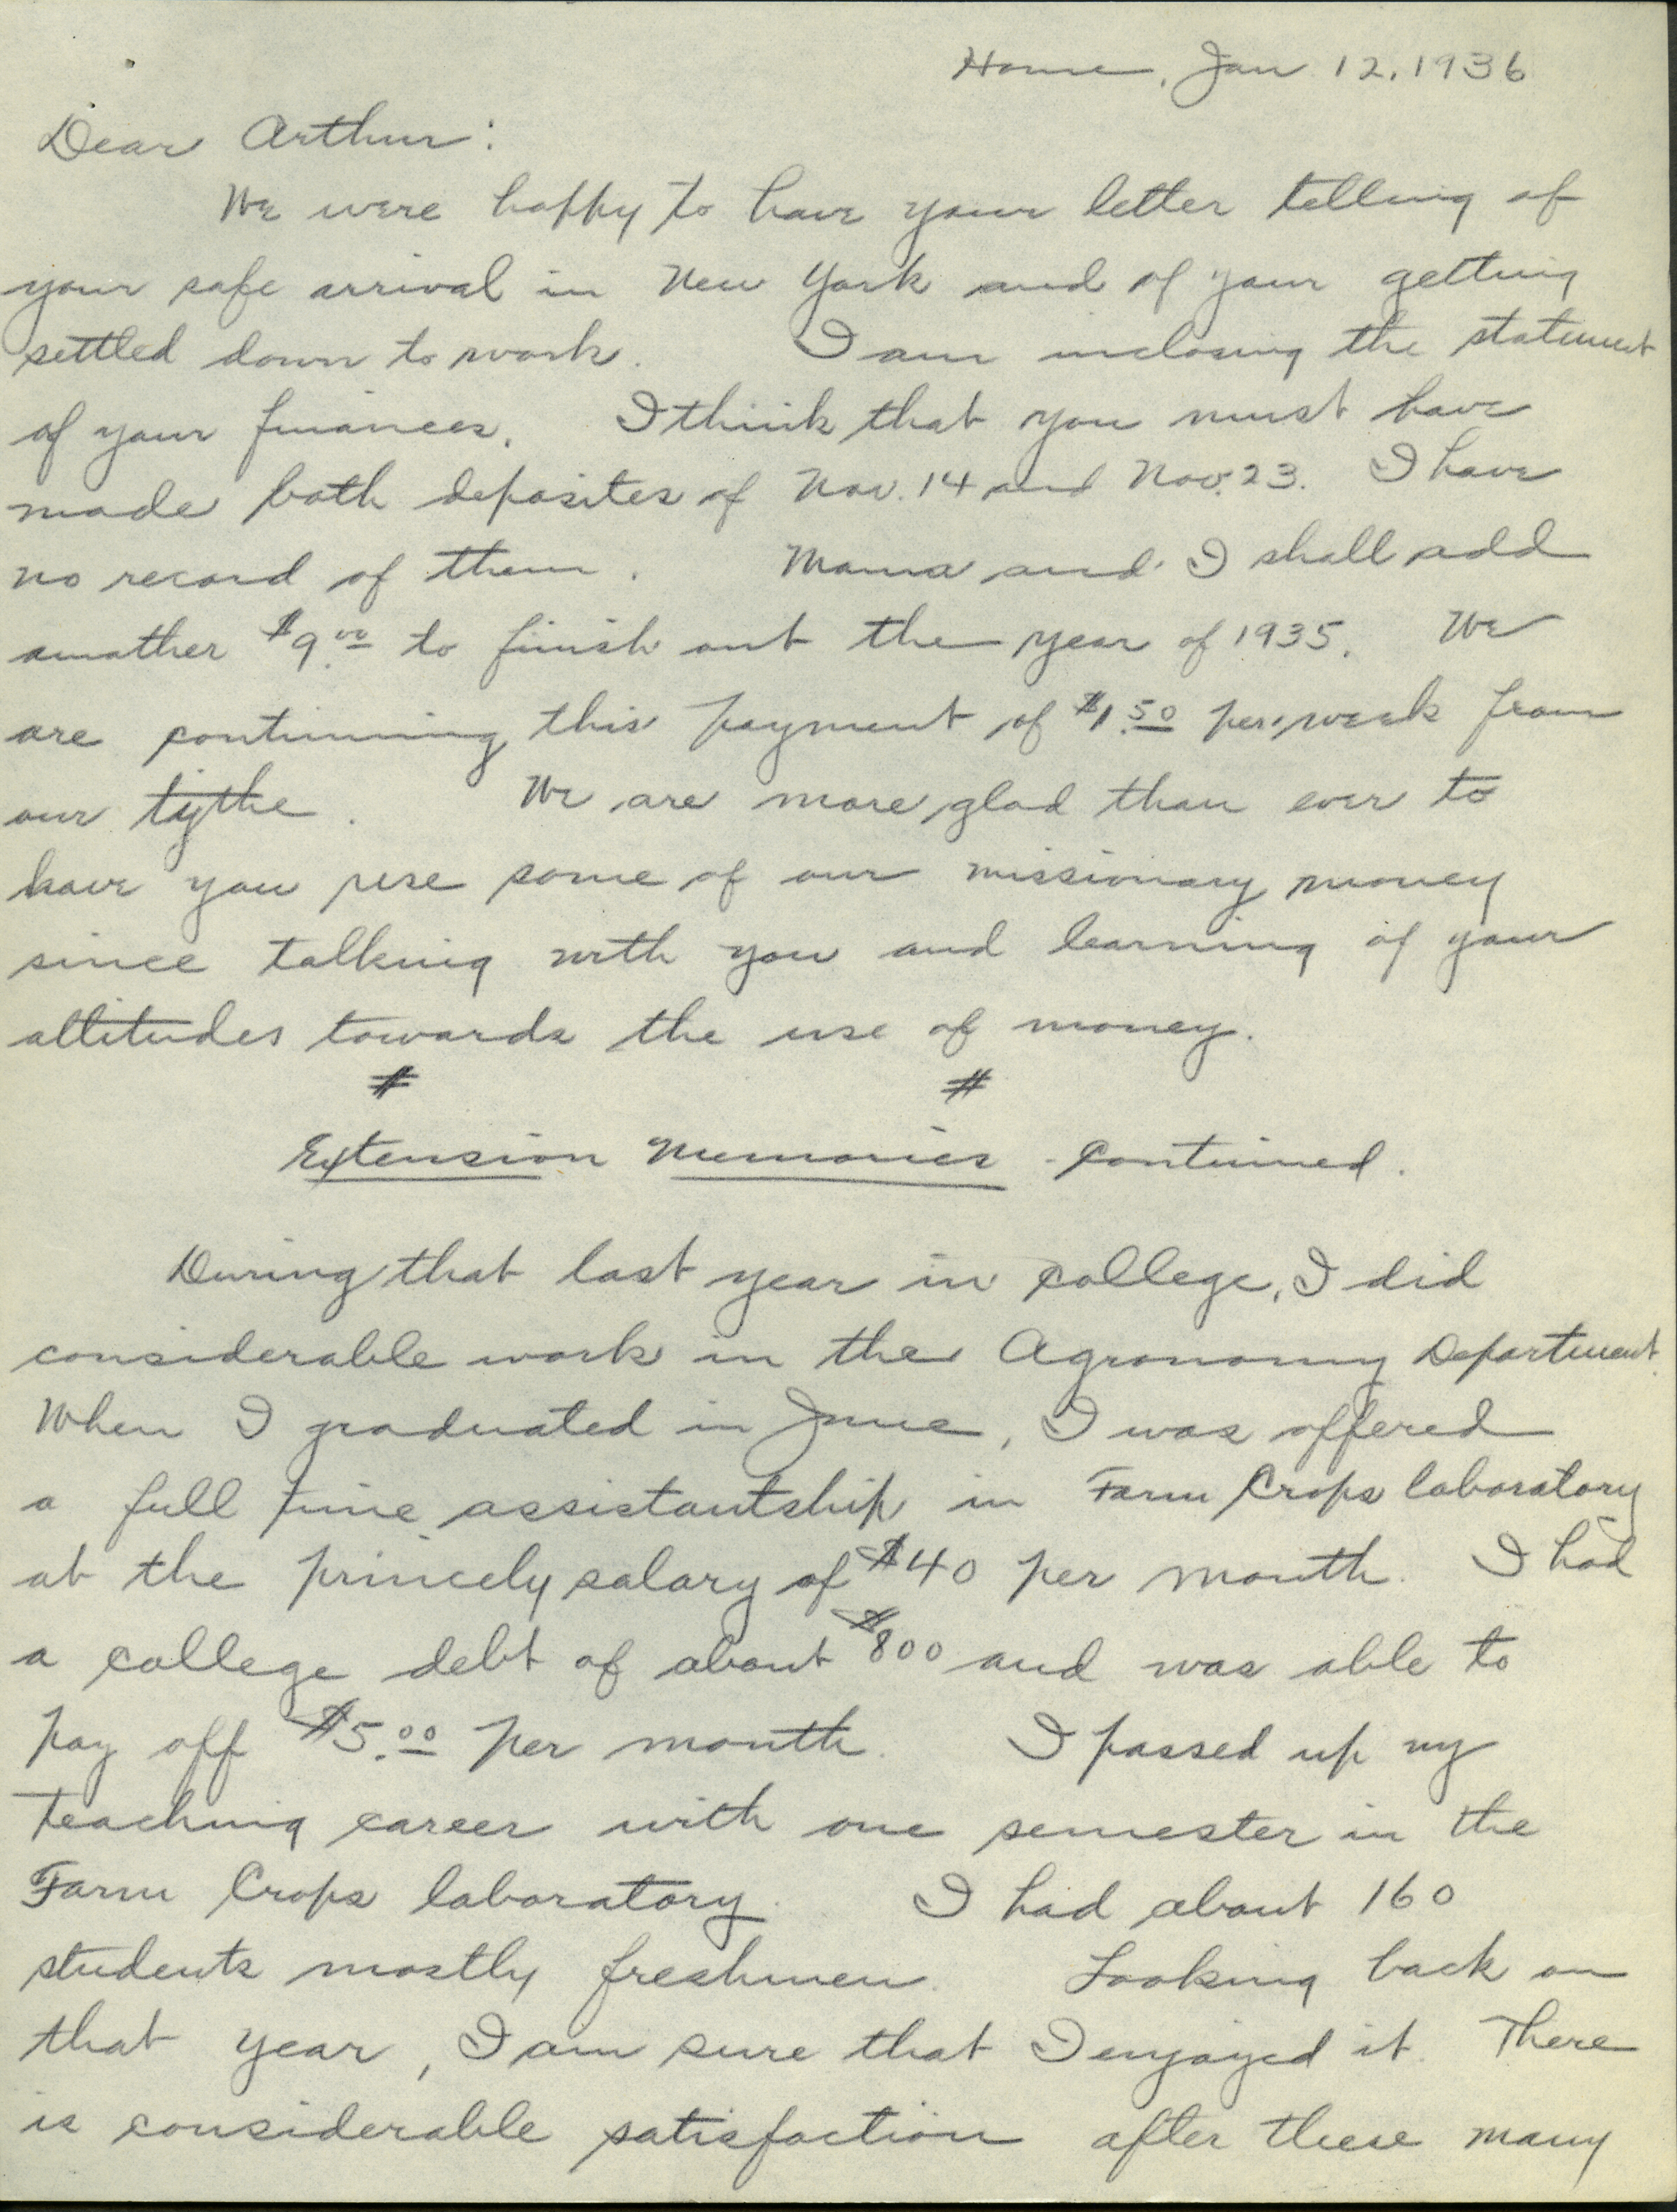 Home, Jan 12, 1936
Dear Arthur:
We were happy to have your letter telling of
your safe arrival in New York and of your getting
settled down to work. I am inclosing the statement
of your finances. I think that you must have
made both deposites of Nov. 14 and Nov. 23. I have
no record of them. Mama and I shall add
another $9.00 to finish out the year of 1935. We
are continuing this payment of $1.50 per week from
our tythe. We are more glad than ever to
have you use some of our missionary money
since talking with you and learning of your
attitudes towards the use of money.
# #
Extension Memories - Continued.
During that last year in college, I did
considerable work in the Agronomy Department.
When I graduated in June, I was offered
a full time assistantship in Farm Crops laboratory
at the princely salary of $40 per month. I had
a college debt of about $800 and was able to
pay off $5.00 per month. I passed up my
teaching career with one semester in the
Farm Crops laboratory. I had about 160
students mostly freshmen. Looking back on
that year, I am sure that I enjoyed it. There
is considerable satisfaction after these many